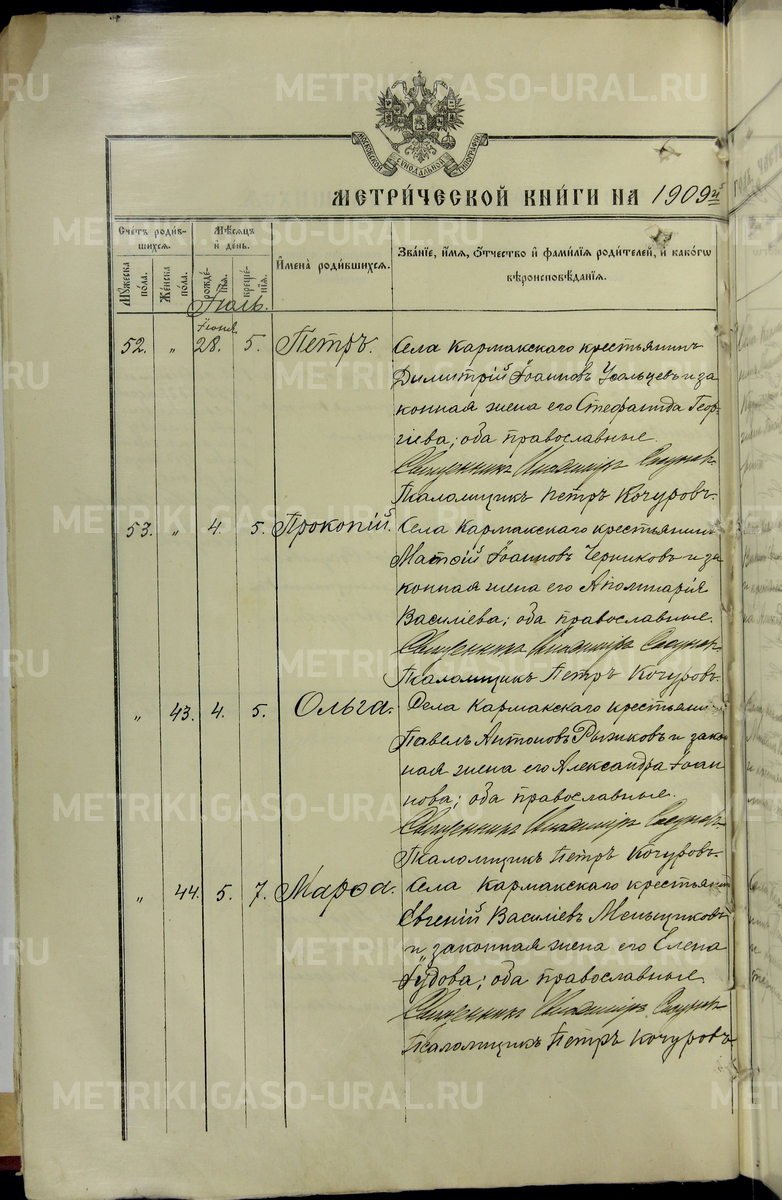 METRIKI.GASO-URAL.RU
МОСКОВСКОЙ СѴНОДАЛЬНОЙ ТИПОГРАФІИ
МЕТРИ́ЧЕСКОЙ КНИ́ГИ НА 1909й
Сче́тъ роди́вшихся.
Мꙋ́жеска по́ла.
Же́нска по́ла.
Мѣ́сяцъ и҆ де́нь.
рожде́нїѧ.
креще́нїѧ.
И҆мена̀ роди́вшихся.
Зва́нїе, и҆́мѧ, ѻ҆́тчество и҆ фами́лїѧ роди́телей, и҆ како́гѡ вѣроисповѣ́данїѧ.
Іюль.
Іюня
52. " 28. 5. Петръ. Села Кармакскаго крестьянинъ
Димитрій Іоанновъ Усальцевъ и за
конная жена его Стефанида Геор-
гіева; оба православные.
Священникъ
Псаломщикъ Петръ Кочуровъ.
53. " 4. 5. Прокопій. Села Кармакскаго крестьянинъ
Матѳій Іоанновъ Черниковъ и за
конная жена его Аполинарія
Василіева; оба православные.
Священникъ
Псаломщикъ Петръ Кочуровъ.
" 43. 4. 5. Ольга. Села Кармакскаго крестьянин
Павелъ Антоновъ Рыжковъ и закон
ная жена его Александра Іоан
нова; оба православные.
Священникъ
Псаломщикъ Петръ Кочуровъ.
" 44. 5. 7. Марѳа. Села Кармакскаго крестьянин
Евгеній Василіевъ Меньщиковъ
и законная жена его Елена
Іудова; оба православные.
Священникъ
Псаломщикъ Петръ Кочуровъ